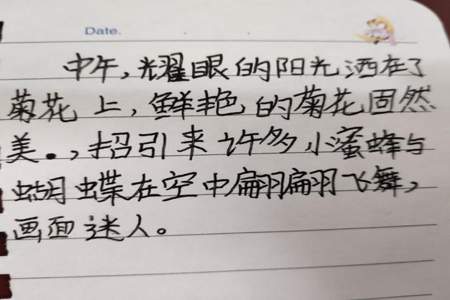 Date.
中午,耀眼的阳光洒在了
菊花上,鲜艳的菊花固然
美。,招引来许多小蜜蜂与
蝴蝶在空中翩翩飞舞,
画面迷人。